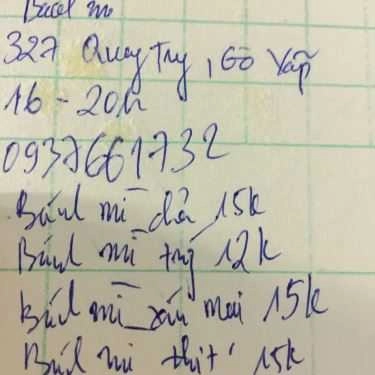 Bánh mì
327 Quang Trung, Gò Vấp
16 - 20h
0937661732
Bánh mì chả 15k
Bánh mì trứng 12k
Bánh mì xíu mại 15k
Bánh mì thịt 15k